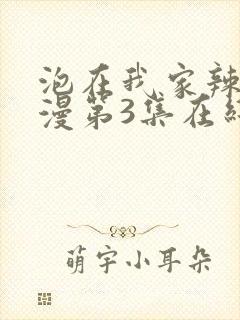 泡在我家辣
漫第3集在
萌宇小耳朵